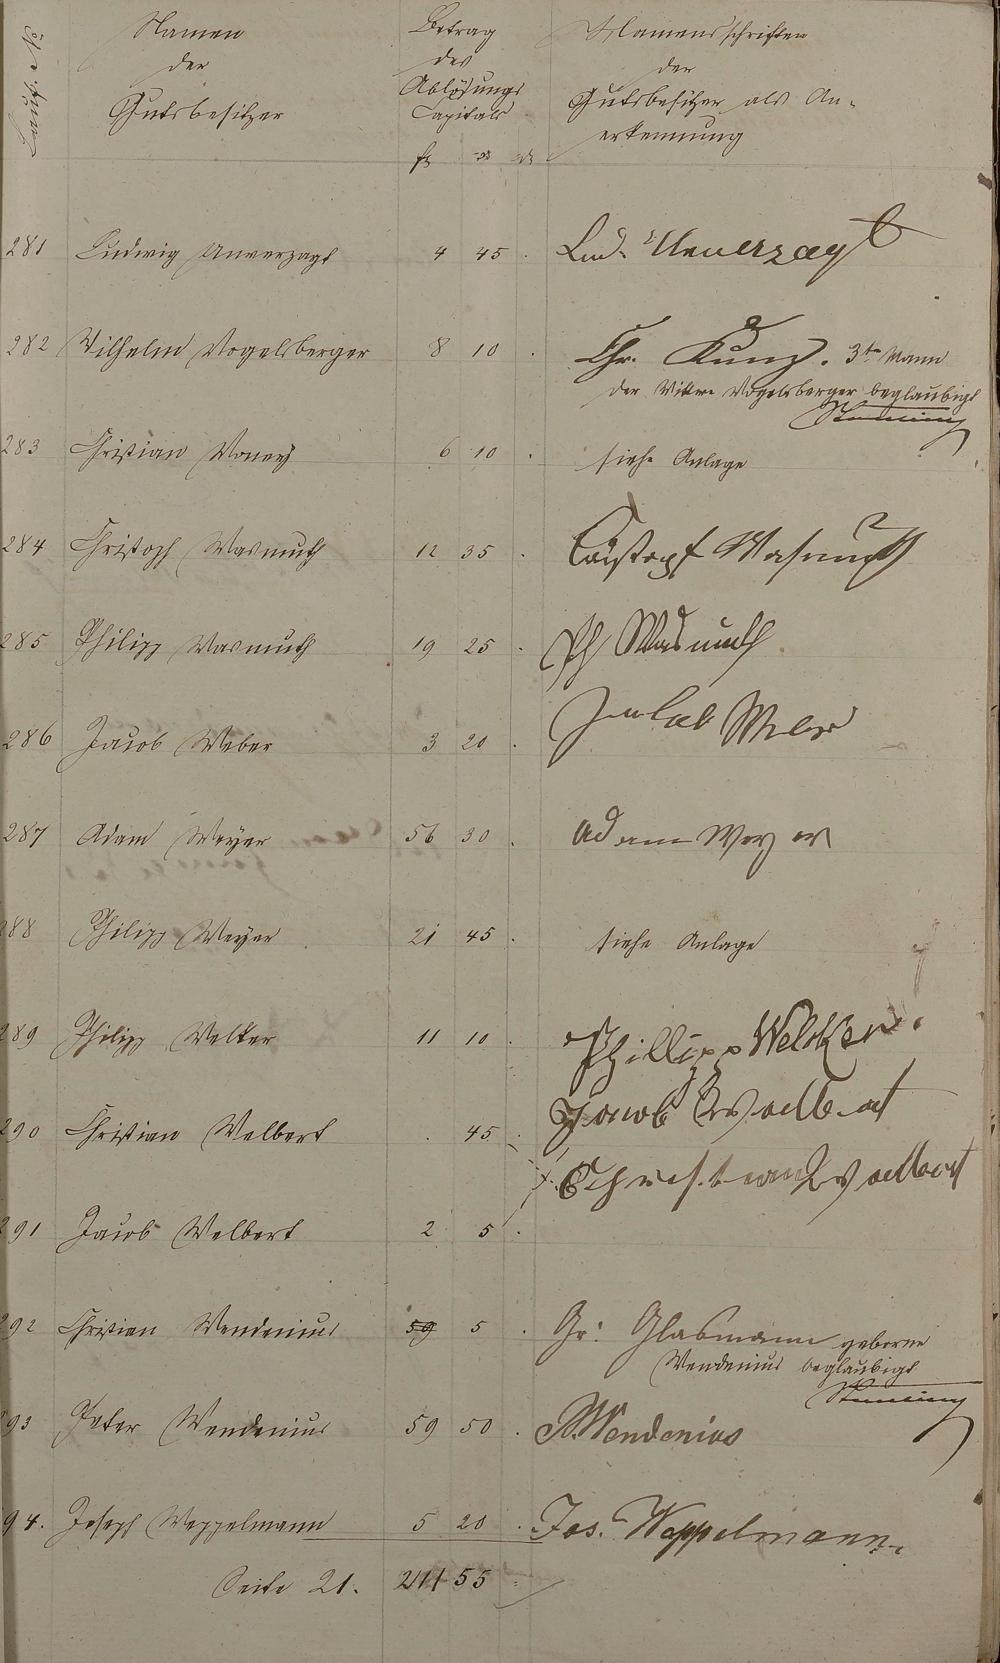 Namen
der
Gutsbesitzer
Betrag
des
Ablösungs
Capitals
fl
Namensschriften
der
Gutsbesitzer als An-
erkennung
281 Ludwig Unverzagt 4 45 . Lud. Unverzagt
282 Wilhelm Vogelsberger 8 10 . Chr. Kunz. 3ter Mann
der Wittwe Vogelsberger beglaubigt
283 Christian 6 10 . siehe Anlage
284 Christoph Wasmuth 12 35 . Cristopf Wasmuth
285 Philipp Wasmuth 19 25 . Ph Wasmuth
286 Jacob Weber 3 20 . Jacob Weber
287 Adam Weyer 56 30 . Adam Weyer
288 Philipp Weyer 21 45 . siehe Anlage
289 Philipp Welker 11 10 . Phillipp Welcker
290 Christian Welbert . 45 . Jacob Wellbert
Christian Wellbert
291 Jacob Welbert 2 5 .
292 Christian Wendenius 59 5 . Gr: Glasmann geborne
Wendenius beglaubigt
293 Peter Wendenius 59 50 . P. Wendenius
294. Joseph Weppelmann 5 20 . Jos. Weppelmann.
Seite 21. 211 55